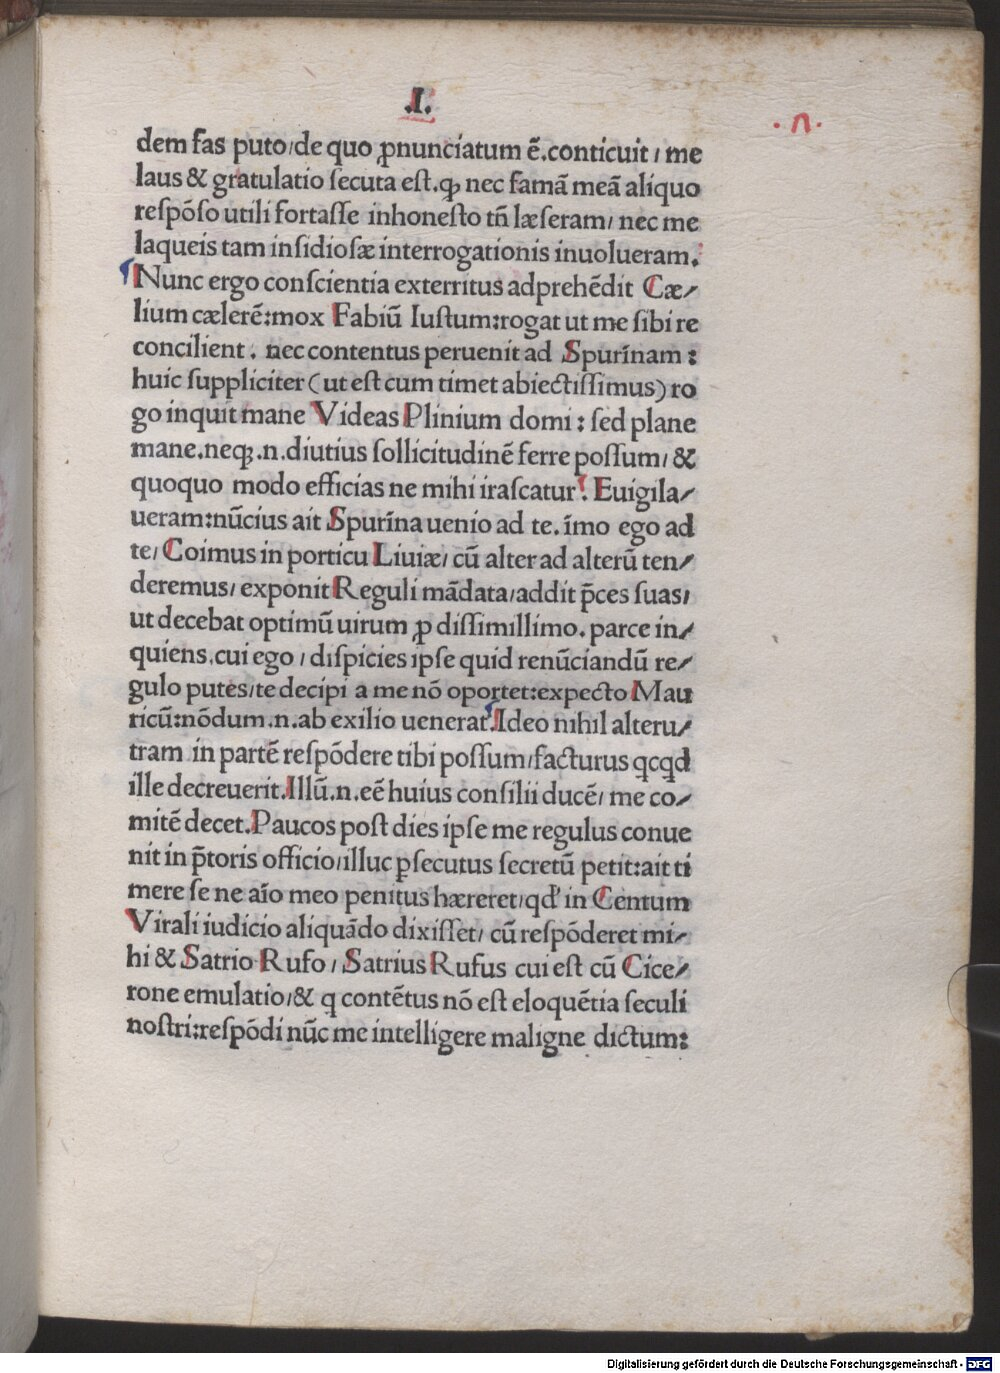 .I.
.n.
dem fas puto/de quo ꝓnunciatum ē.conticuit/me
laus & gratulatio ſecuta eſt.qꝫ nec famā meā aliquo
reſpōſo utili fortaſſe inhoneſto tn̄ læſeram/nec me
laqueis tam inſidioſæ interrogationis inuolueram.
Nunc ergo conſcientia exterritus adprehēdit Cæ⸗
lium cælerē:mox Fabiū Iuſtum:rogat ut me ſibi re
concilient. nec contentus peruenit ad Spurīnam:
huic ſuppliciter (ut eſt cum timet abiectiſſimus) ro
go inquit mane Videas Plinium domi: ſed plane
mane.neqꝫ.n.diutius ſollicitudinē ferre poſſum/&
quoquo modo efficias ne mihi iraſcatur. Euigila⸗
ueram:nūcius ait Spurīna uenio ad te.īmo ego ad
te/Coimus in porticu Liuiæ/cū alter ad alterū ten⸗
deremus/exponit Reguli mādata/addit p̄ces ſuas/
ut decebat optimū uirum ꝓ diſſimillimo.parce in⸗
quiens.cui ego/diſpicies ipſe quid renūciandū re⸗
gulo putes/te decipi a me nō oportet:expecto Mau
ricū:nōdum.n.ab exilio uenerat.Ideo nihil alteru⸗
tram in partē reſpōdere tibi poſſum/facturus qcqd
ille decreuerit.Illū.n.eē huius conſilii ducē/me co⸗
mitē decet.Paucos poſt dies ipſe me regulus conue
nit in p̄toris officio/illuc ꝑſecutus ſecretū petit:ait ti
mere ſe ne aīo meo penitus hæreret/qd' in Centum
Virali iudicio aliquādo dixiſſet/cū reſpōderet mi⸗
hi & Satrio Rufo/Satrius Rufus cui eſt cū Cice⸗
rone emulatio/& q contētus nō eſt eloquētia ſeculi
noſtri:reſpōdi nūc me intelligere maligne dictum:
Digitalisierung gefördert durch die Deutsche Forschungsgemeinschaft - DFG